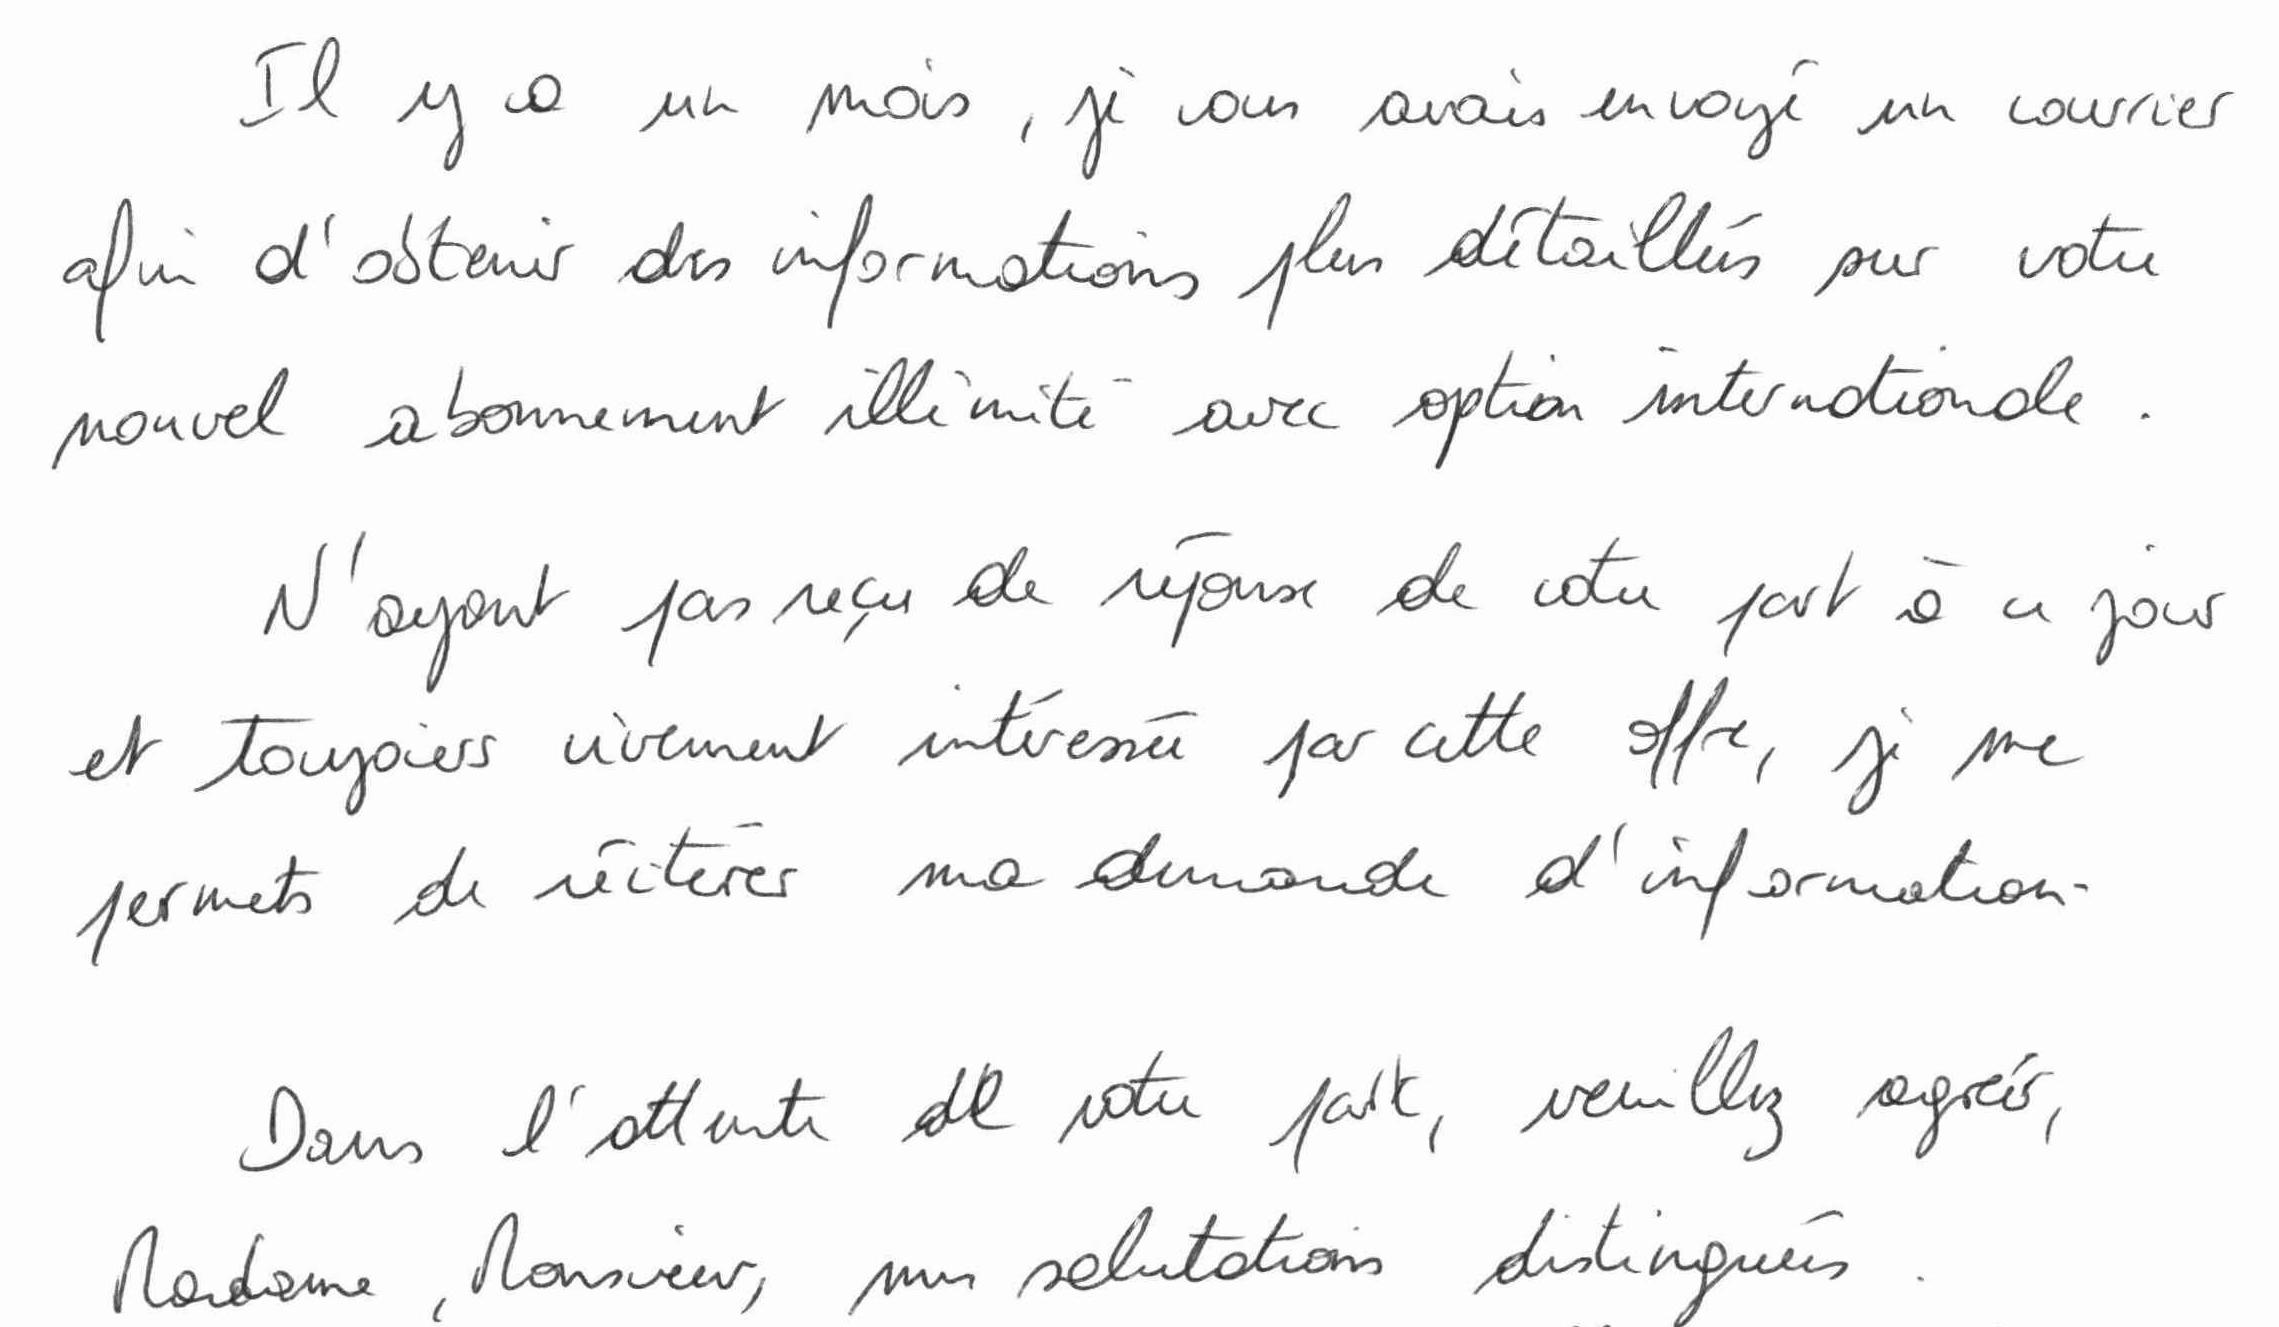 Il y a un mois, je vous avais envoyé un courrier
afin d'obtenir des informations plus détaillées sur votre
nouvel abonnement illimité avec option internationale.
N'ayant pas reçu de réponse de votre part à ce jour
et toujours vivement intéressée par cette offre, je me
permets de réitérer ma demande d'information.
Dans l'attente de votre part, veuillez agréer,
Madame, Monsieur, mes salutations distinguées.